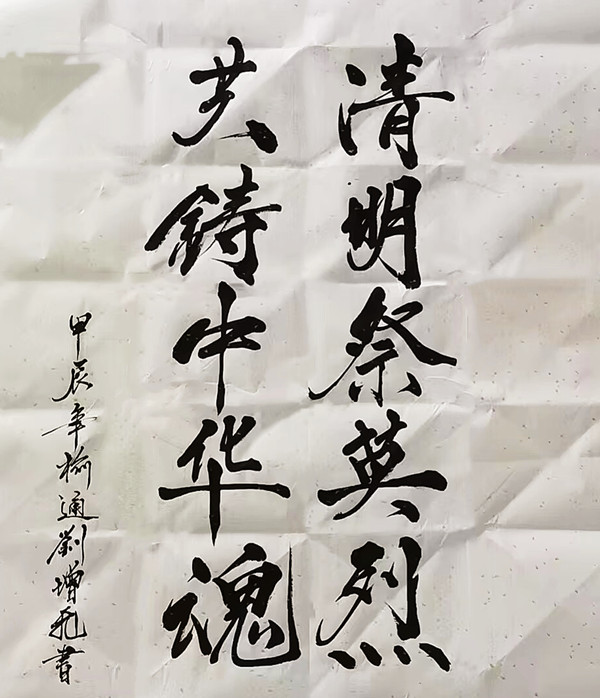 清明祭英烈
共铸中华魂
甲辰年榆通劉增飛書